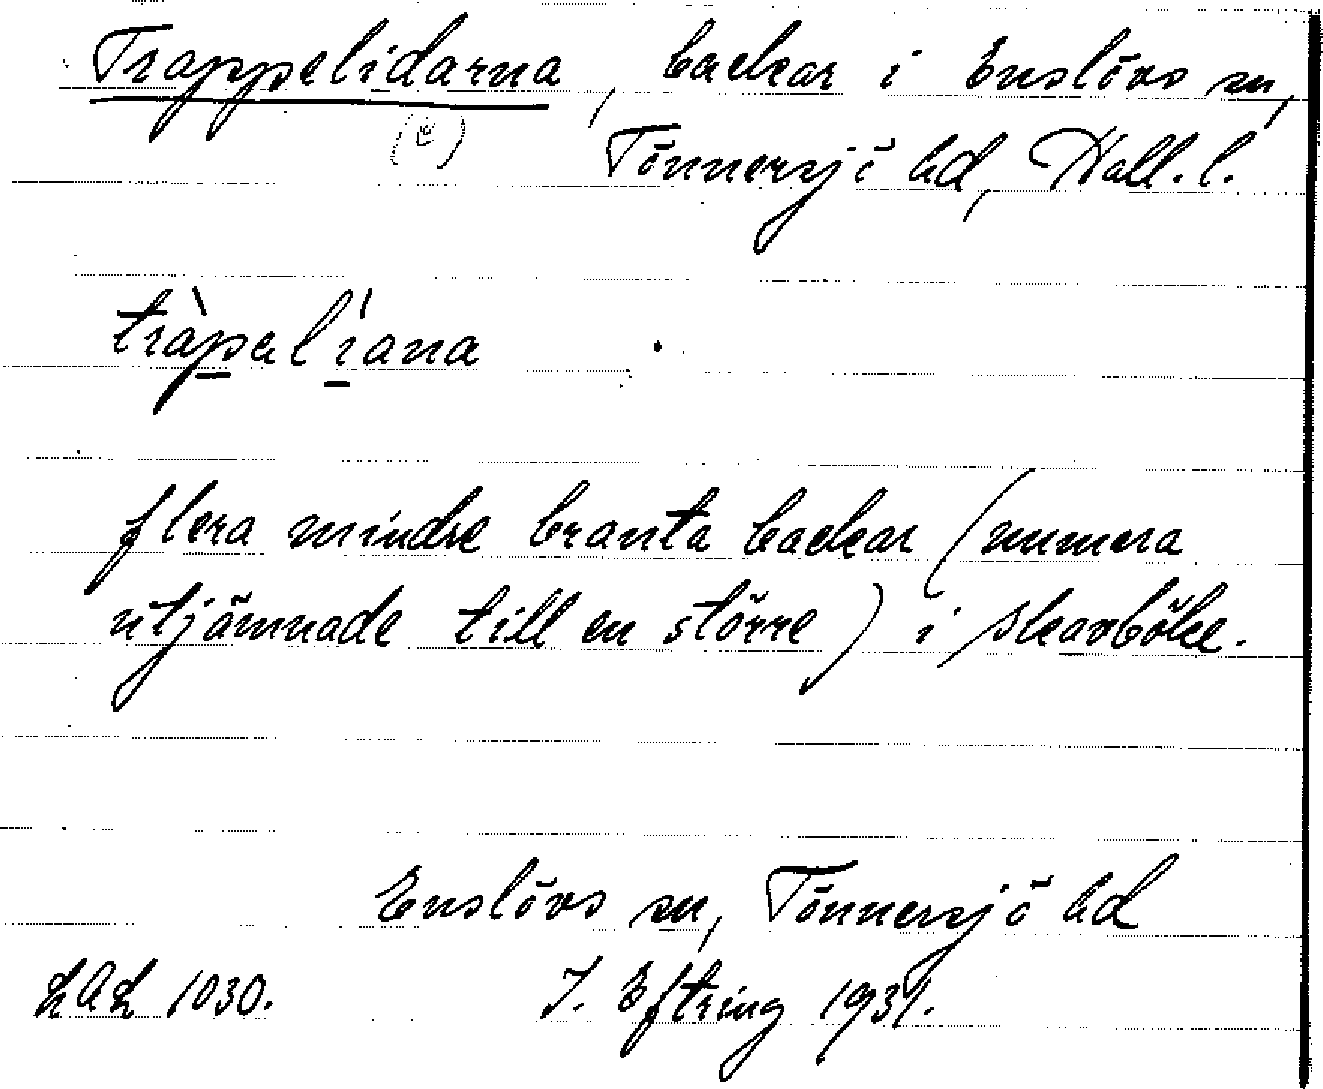 Trappelidarna, backar i Enslövs sn,
(e)
Tönnersjö hd, Hall. l.
tràpəlíana
flera mindre branta backar (numera
utjämnade till en större) i Skavböke.
Enslövs sn, Tönnersjö hd
LAL 1030. I. Eftring 1931.